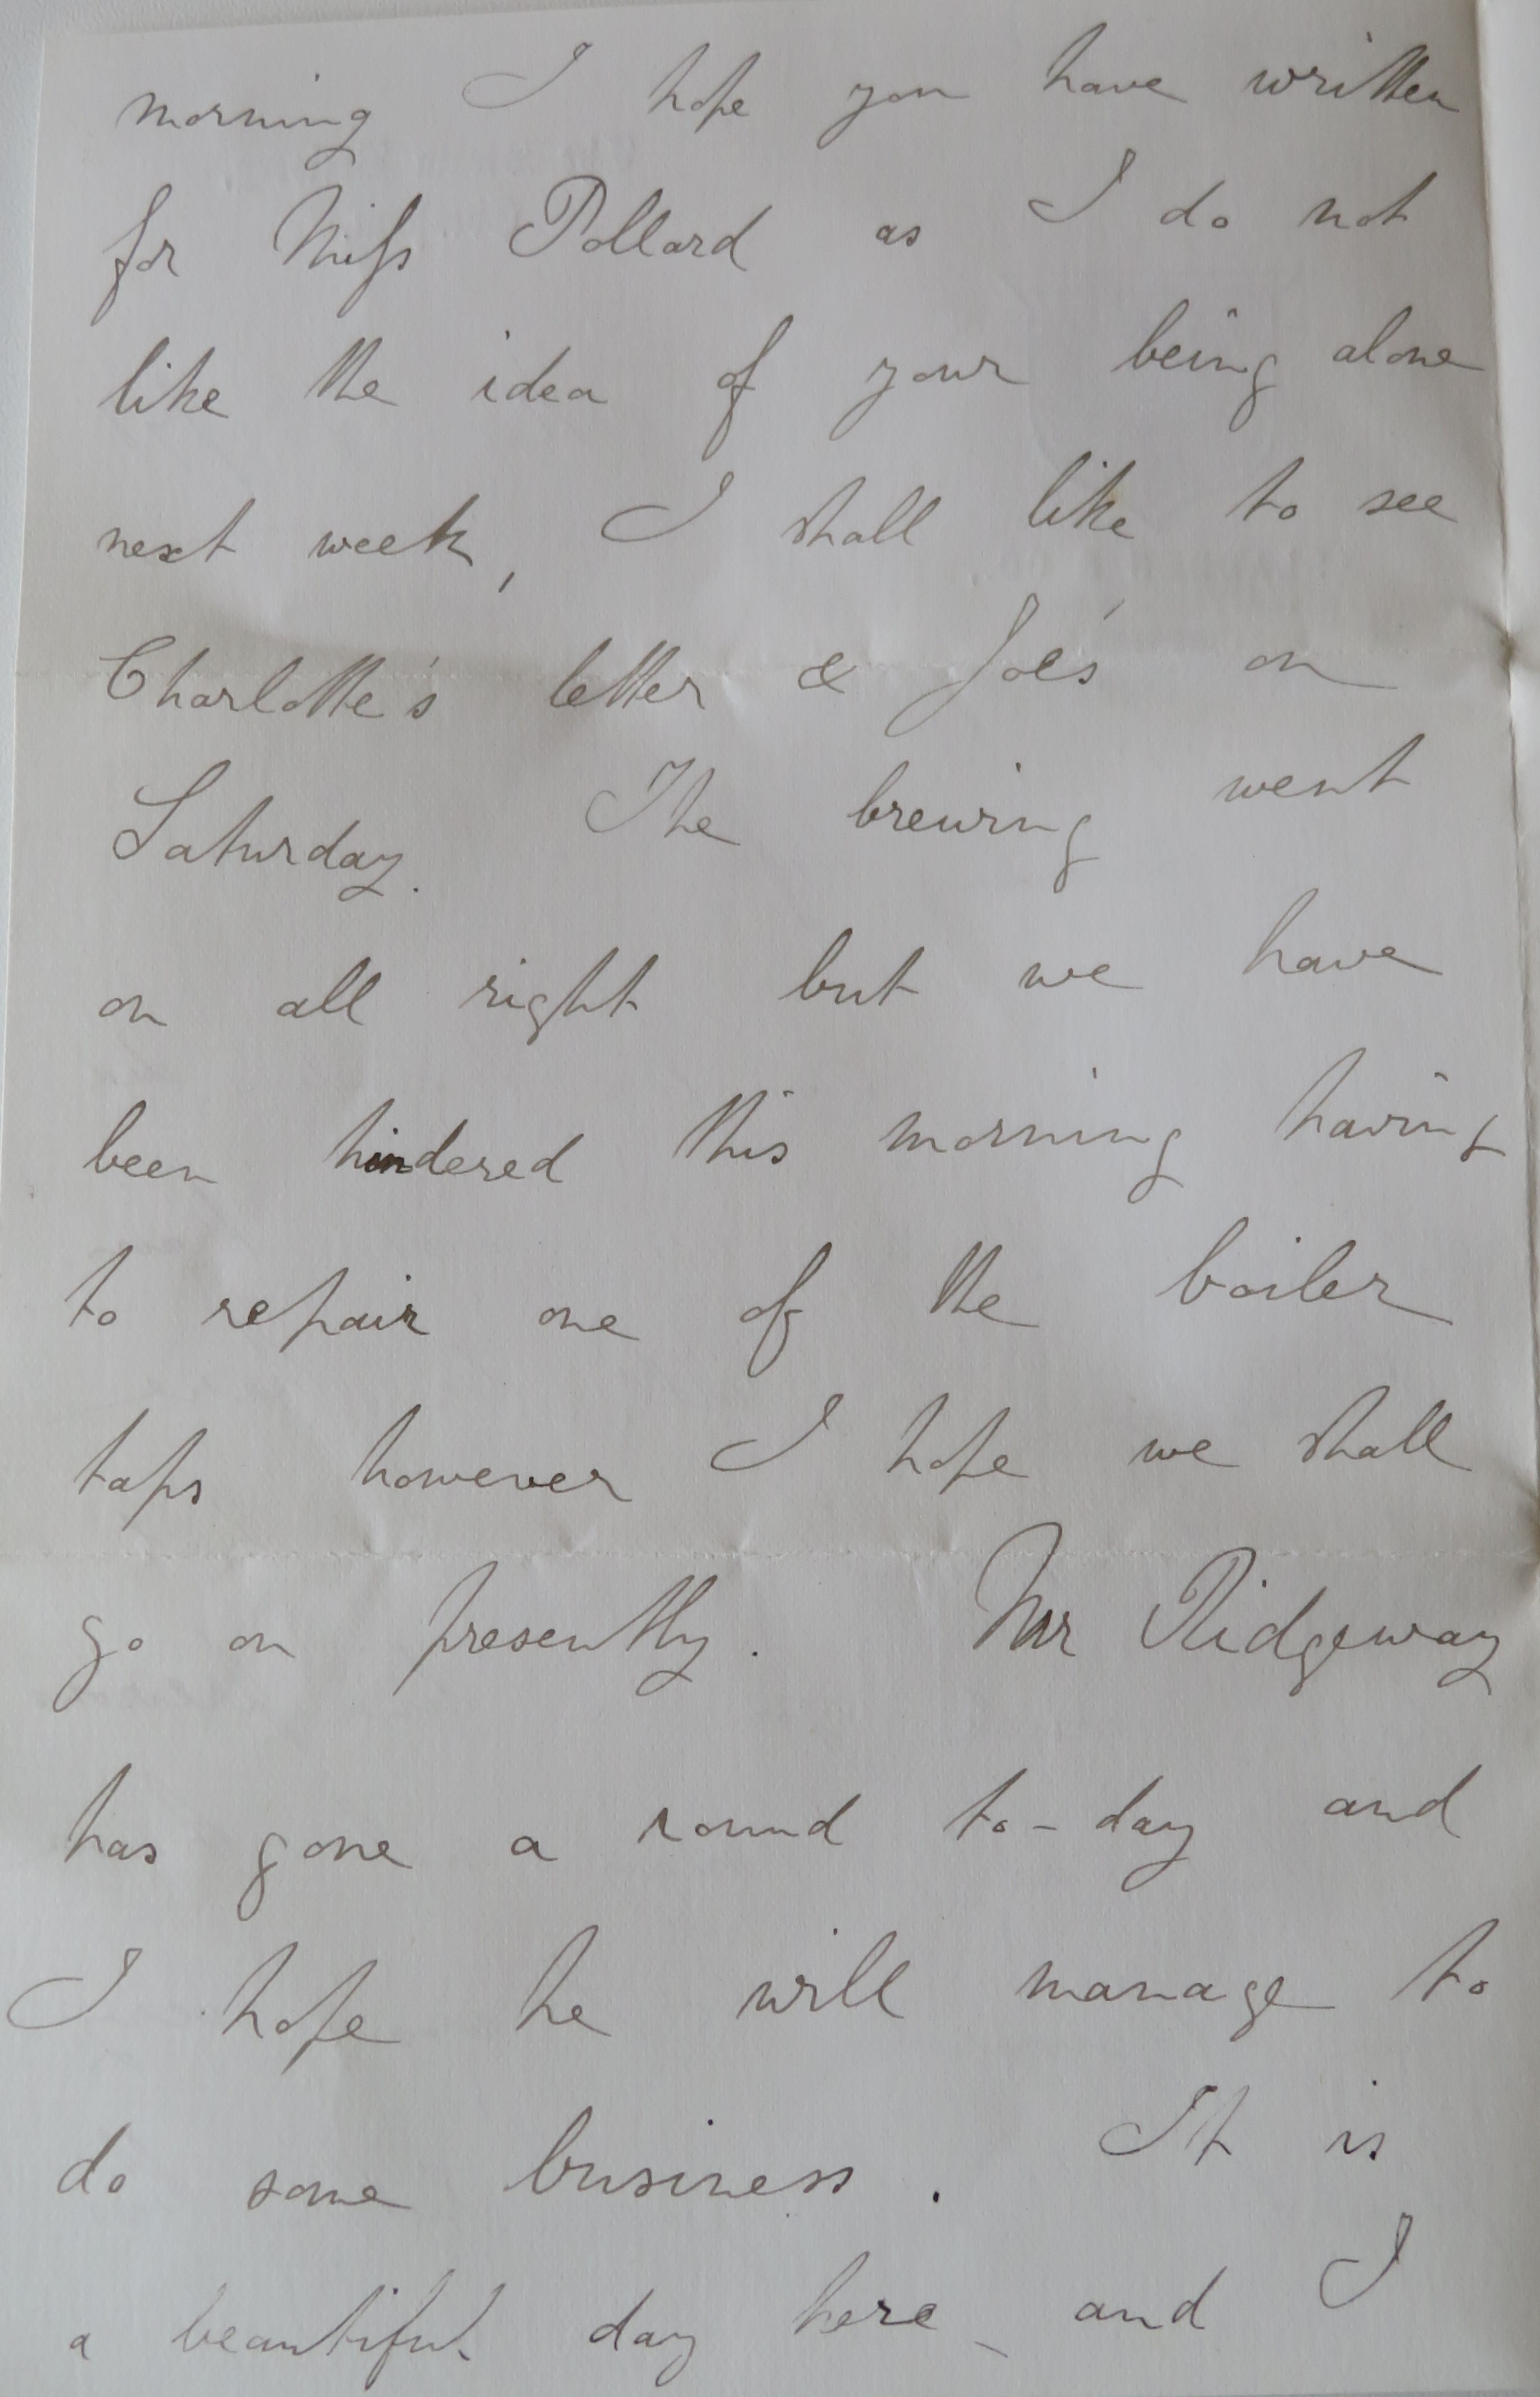 morning I hope you have written
for Miss Pollard as I do not
like the idea of your being alone
next week, I shall like to see
Charlotte's letter & Joe's on
Saturday. The brewing went
on all right but we have
been hindered this morning having
to repair one of the boiler
taps however I hope we shall
go on presently. Mr Ridgeway
has gone a round to-day and
I hope he will manage to
do some business. It is
a beautiful day here and I